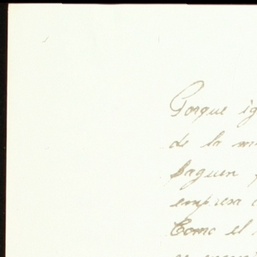 Porque ig
de la m
haguen
empresa
Como el